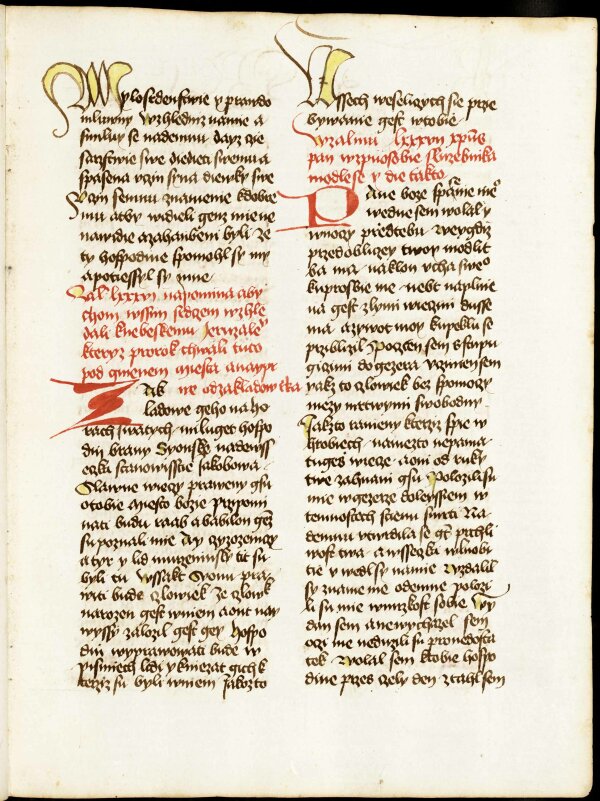 Mylosrdenstwie y prawdo
mluwny Wzhledniz namie a
smiluy se nademnu dayz cie
sarzstwie swe diedieti swemu a
spasena vczin syna diewky swe
Vczin semnu znamenie kdobre
mu atby widieli genz mie ne
nawidie azahanbeni byli Ze
ty hospodine spomohl sy my
apotiessyl sy mne
Sal lxxxvi napomina aby
chom wssim srdczem wzhle
dali knebeskemu Jeruzalo
kteryz prorok chwali tuto
pod gmenem miesta anayp
rwe odzakladow rka
Zak
ladowe geho na ho
rach swatych miluget hospo
din brany Syonske nadewss
eczka stanowisstie Jakobowa
Slawne wieczy praweny gsu
otobie miesto bozie Przypomi
nati budu raab ababilon genz
su poznali mie Ay czyzozemczy
atyr y lid murzeninsky tit su
byli tu Wssakt Syonu pra
witi bude Czlowiek Ze czlowiek
narozen gest wniem aont nay
wyssy zalozil gest gey hospo
din wyprawowati bude w
pismiech lidi y kniezat gich k
terziz su byli wniem Jakozto
Wssech weseliczych sie prze
bywanie gest wtobie
Wzalmu lxxxvii xpus
pan wzpuosobie sluzebnika
modlese y die takto
Pane boze spasenie meo
wedne sem wolal y
wnoczy przedtebu Weygdiz
przed obliczey twoy modlit
ba ma naklon vcha sweo
kuprosbie me nebt naplnie
na gest zlymi wieczmi dusse
ma azywot moy kupeklu se
przibliził Poczten sem sstupu
giczimi do gezera vczinien sem
yakzto czlowiek bez spomoczy
mezy mrtwymi swobodny
Jakzto ranieny kterziz spie w
hrobiech namiezto nepama
tuges wiecze aoni od ruky
twe zahnani gsu Polozili su
mie wgezerze dolenssiem w
temnostech stienu smrti Na
demnu vtwrdila se gest prchli
wost twa awsseczka wlnobi
tie vwedl sy namie Wzdalil
sy zname me odemne Polozi
li su mie wmrzkost sobie Wy
dan sem anewychazel sem
oczi me nedwzily su pronedosta
tek Wolal sem ktobie hospo
dine przes czely den ztahl sem